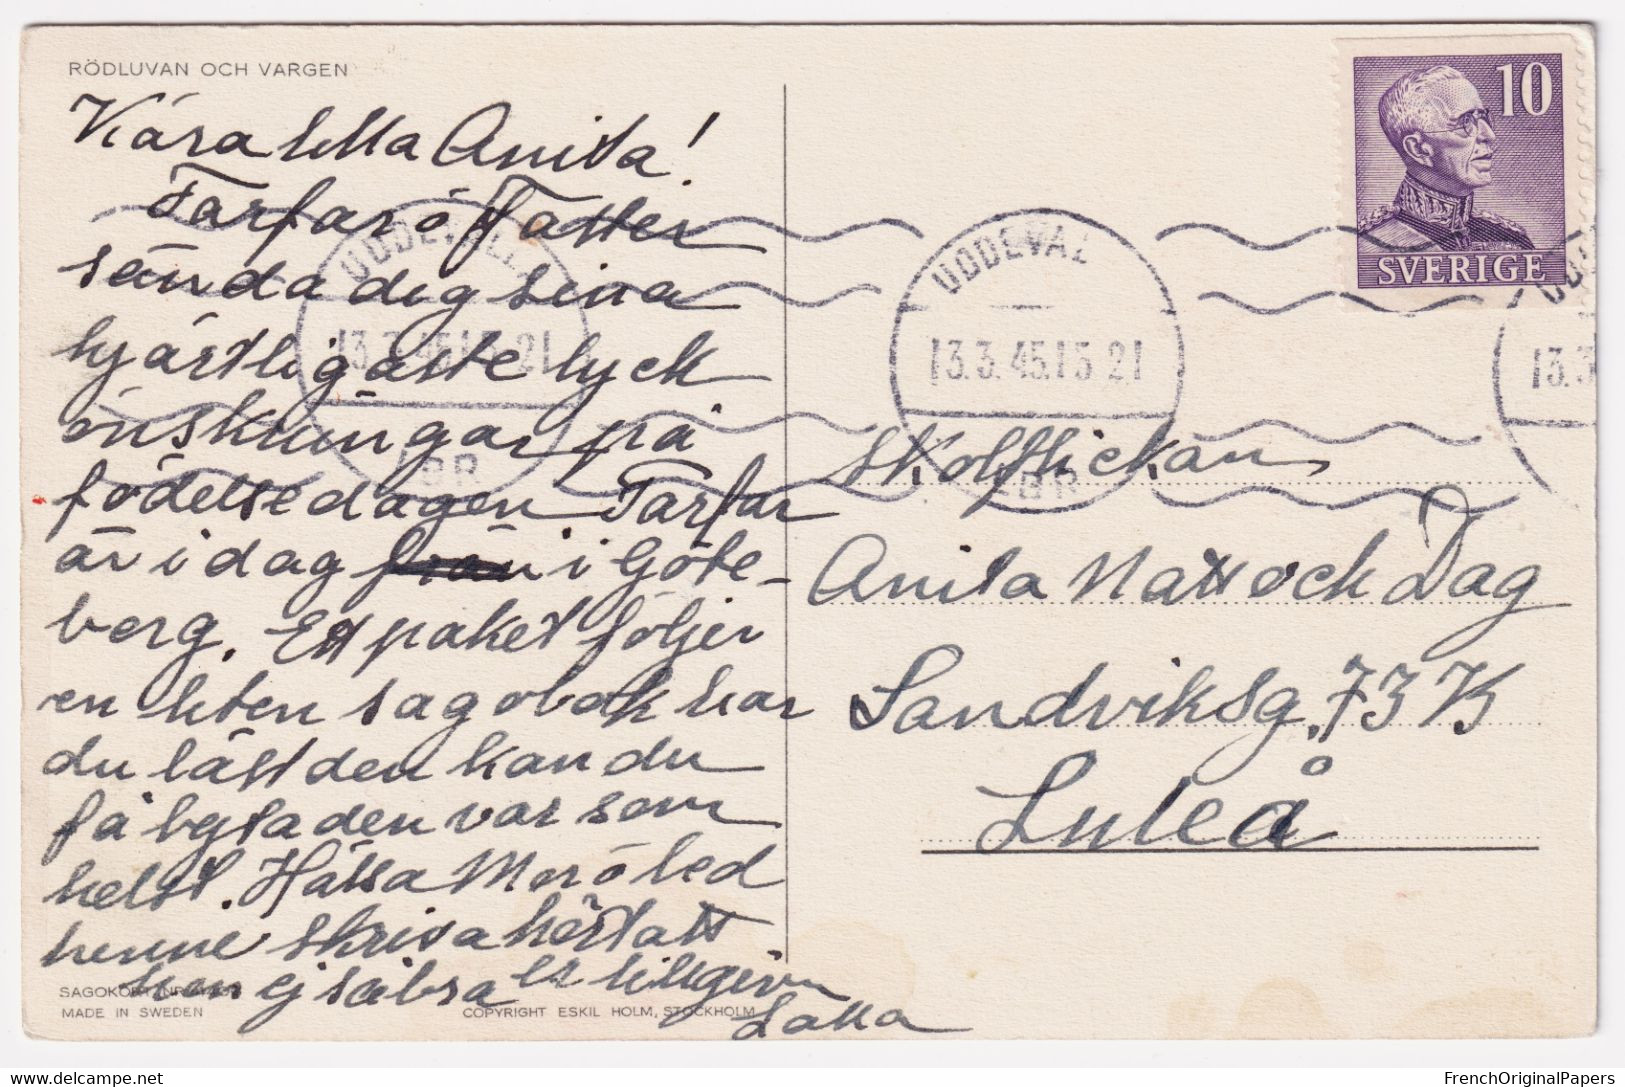 RÖDLUVAN OCH VARGEN
Kära lilla Anita!
Farfar ö Faster
sända dig sina
hjärtligaste lyck
önskningar på
födelsedagen Farfar
är i dag i Göte-
borg. Ett paket följer
en liten sagobok har
du läst den kan du
få byta den var som
helst. Hälsa Mor ö bed
henne skriva
kan ej
Lalla
SAGOKORT NR
MADE IN SWEDEN
COPYRIGHT ESKIL HOLM, STOCKHOLM
10
SVERIGE
UDDEVALLA
13.3.45.15 21
LBR
UDDEVAL
13.3.45.15 21
LBR
13.3
Skolflickan
Anita Natt och Dag
Sandviksg. 73 K
Luleå
FrenchOriginalPapers